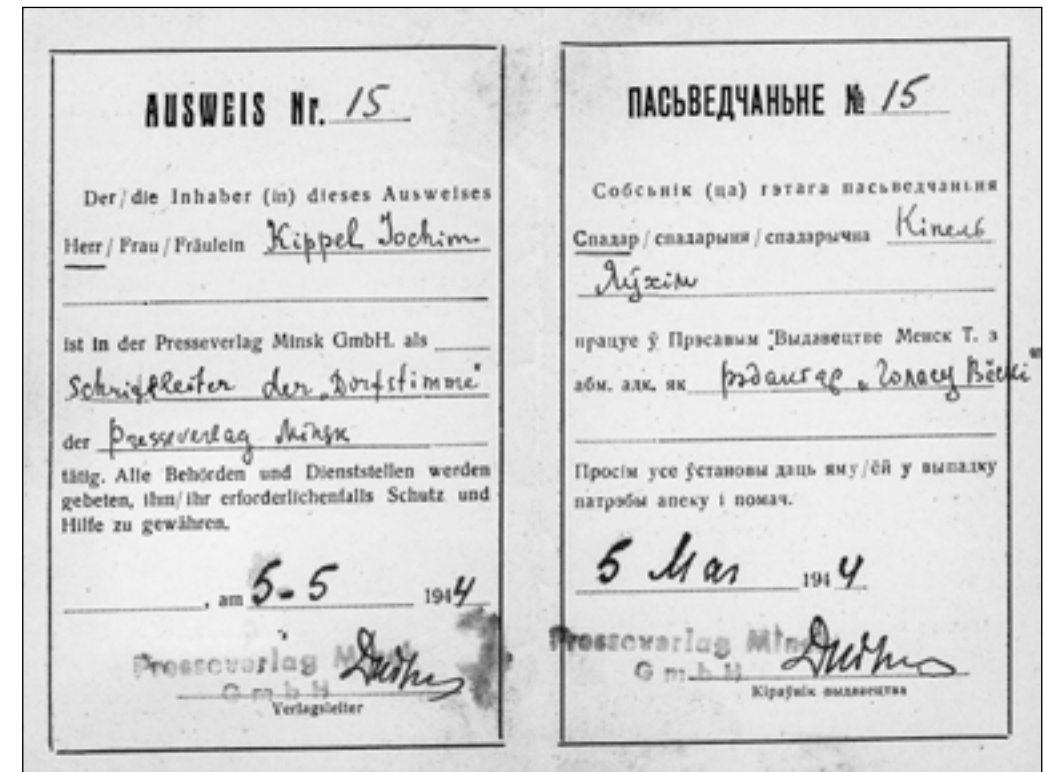 AUSWEIS Nr. 15
Der/die Inhaber (in) dieses Ausweises
Herr / Frau / Fräulein Kippel Jochim
ist in der Presseverlag Minsk GmbH. als
Schriftleiter der „Dorfstimme"
der Presseverlag Minsk
tätig. Alle Behörden und Dienststellen werden
gebeten, ihm/ihr erforderlichenfalls Schutz und
Hilfe zu gewähren.
, am 5-5 1944
Presseverlag Minsk
GmbH
Verlagsleiter
ПАСЬВЕДЧАНЬНЕ № 15
Собсьнік (ца) гэтага пасьведчаньня
Спадар / спадарыня / спадарычна Кіпель
Яўхім
працуе ў Прэсавым Выдавецтве Менск Т. з
абм. адк. як рэдактар „Голасу Вёскі"
Просім усе ўстановы даць яму/ёй у выпадку
патрэбы апеку і помач.
5 Мая 1944
Presseverlag Minsk
GmbH
Кіраўнік выдавецтва